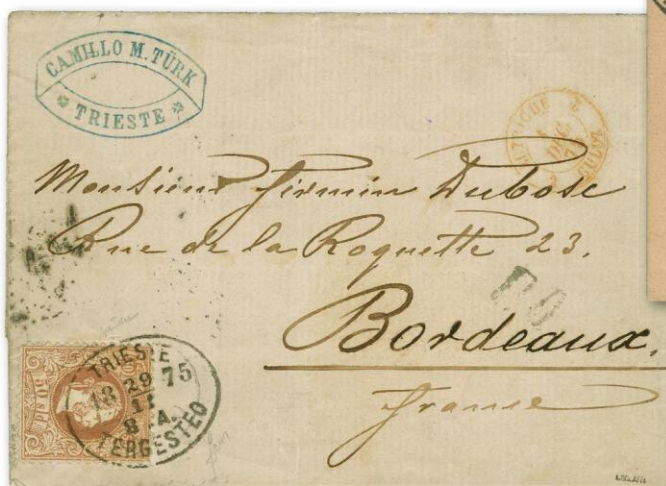 CAMILLO M. TÜRK
TRIESTE
AUTRICHE
Monsieur Firmin Dubosc
Rue de la Roquette 23.
PD
Bordeaux.
France
TRIESTE
18 29 75
11
8 A.
TERGESTEO
50 SLD